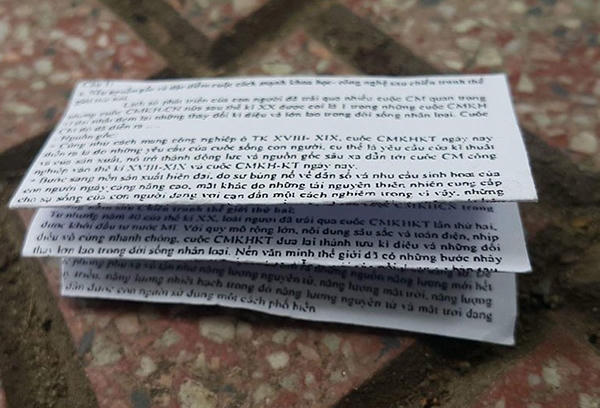 Câu 1:
* Nêu nguồn gốc và đặc điểm cuộc cách mạng khoa học - công nghệ sau chiến tranh thế
giới thứ hai.
Lịch sử phát triển của con người đã trải qua nhiều cuộc CM quan trọng
nhưng cuộc CMKH-CN nửa sau thế kỉ XX được coi là 1 trong những cuộc CMKH
vĩ đại nhất đem lại những thay đổi kì diệu và lớn lao trong đời sống nhân loại. Cuộc
CM đó đã diễn ra ....
Nguồn gốc:
- Cũng như cách mạng công nghiệp ở TK XVIII- XIX, cuộc CMKHKT ngày nay
diễn ra là do những yêu cầu của cuộc sống con người, cụ thể là yêu cầu của kĩ thuật
và của sản xuất, nó trở thành động lực và nguồn gốc sâu xa dẫn tới cuộc CM công
nghiệp vào thế kỉ XVIII-XIX và cuộc CMKH-KT ngày nay.
- Bước sang nền sản xuất hiện đại, do sự bùng nổ về dân số và nhu cầu sinh hoạt của
con người ngày càng nâng cao, mặt khác do những tài nguyên thiên nhiên cung cấp
cho sự sống của con người đang vơi cạn dần một cách nghiêm trọng vì vậy, những
sau chiến tranh thế giới thứ hai:
Từ những năm 40 của TK XX, loài người đã trải qua cuộc CMKHKT lần thứ hai,
được khởi đầu từ nước Mĩ. Với quy mô rộng lớn, nội dung sâu sắc và toàn diện, nhịp
điệu vô cùng nhanh chóng, cuộc CMKHKT đưa lại thành tựu kì diệu và những đổi
thay lớn lao trong đời sống nhân loại. Nền văn minh thế giới đã có những bước nhảy
phong phú và vô tận như năng lượng nguyên tử, những nguồn năng lượng mới hết
ỷ triều, năng lượng nhiệt hạch trong đó năng lượng nguyên tử và mặt trời đang
dần được con người sử dụng một cách phổ biến